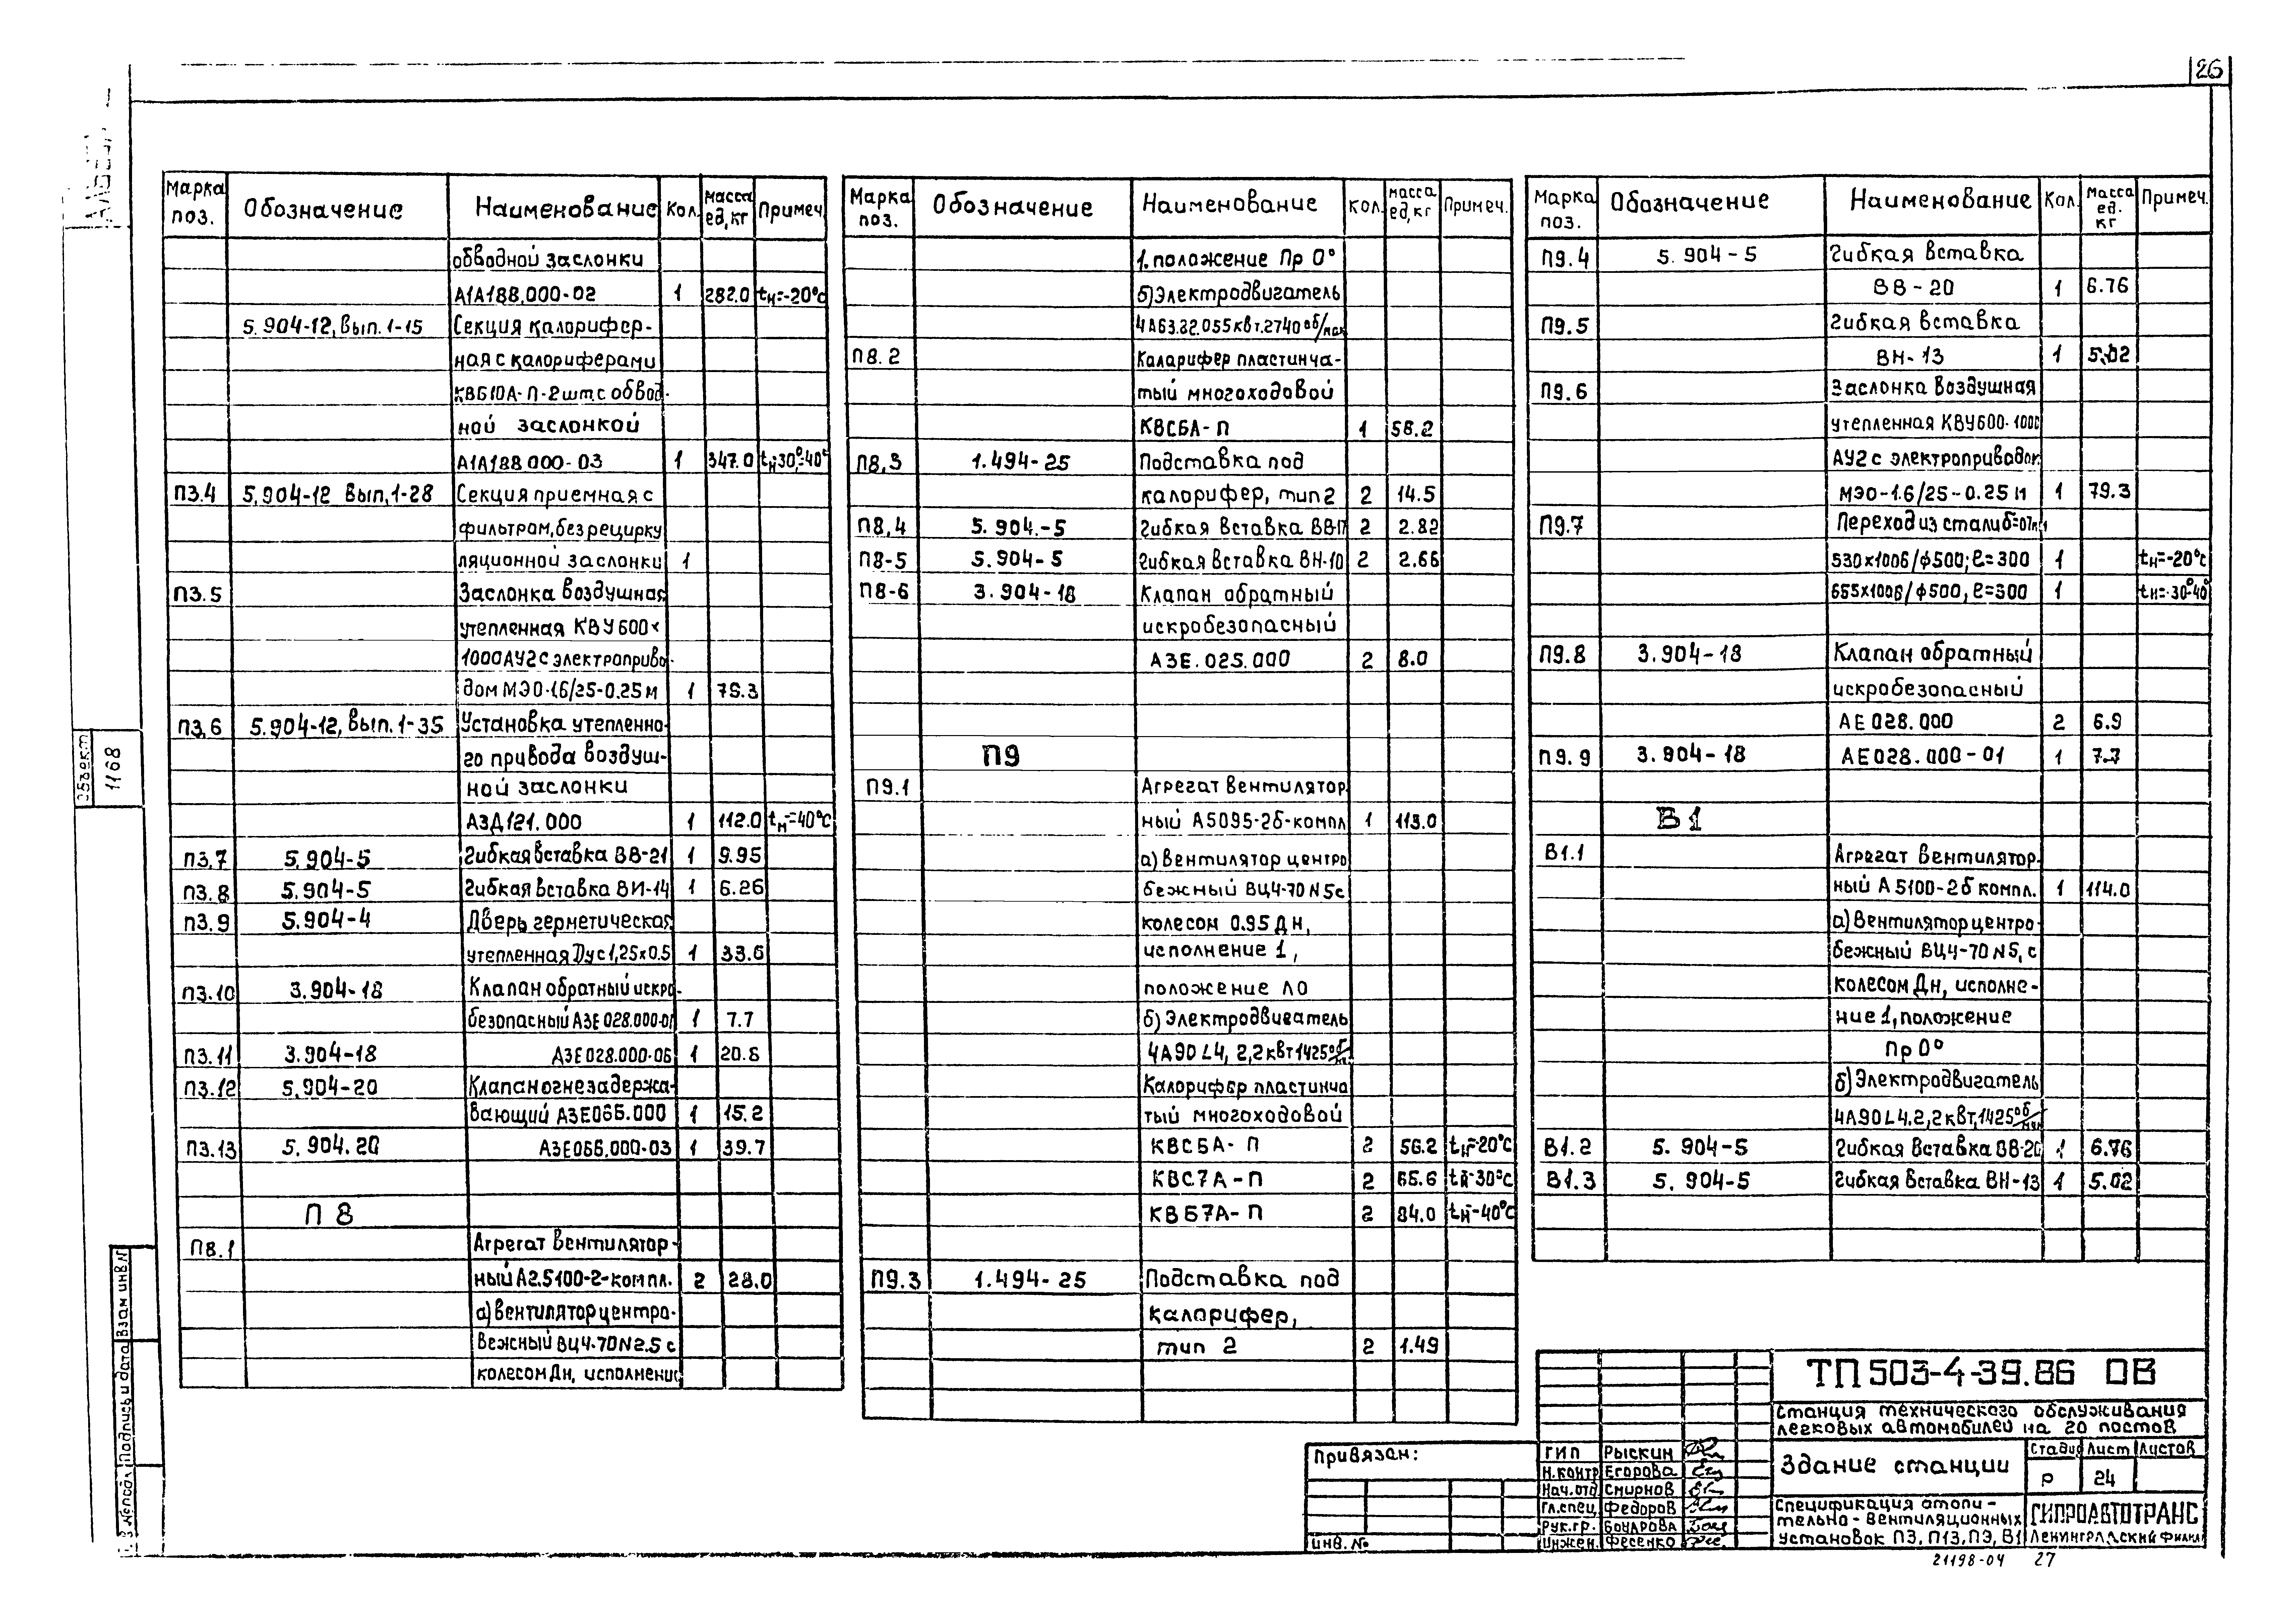 26
Марка поз. Обозначение Наименование Кол. масса ед, кг Примеч.
обводной заслонки
А1А188.000-02 1 282.0 tн=-20°с
5.904-12, Вып. 1-15 Секция калорифер-
ная с калориферами
КВБ10А-П-2шт.с обвод-
ной заслонкой
А1А188.000-03 1 347.0 tн-30°,-40°
П3.4 5.904-12 Вып.1-28 Секция приемная с
фильтром, без рецирку
ляционной заслонки 1
П3.5 Заслонка воздушная
утепленная КВУ600×
1000АУ2 с электроприво-
дом МЭО-1.6/25-0.25м 1
П3.6 5.904-12, Вып. 1-35 Установка утепленно-
го привода воздуш-
ной заслонки
АЗД121.000 1 112.0 tн=-40°с
П3.7 5.904-5 Гибкая вставка ВВ-21 1 9.95
П3.8 5.904-5 Гибкая вставка ВН-14 1 6.26
П3.9 5.904-4 Дверь герметическая
утепленная Dус1,25х0.5 1 33.6
П3.10 3.904-18 Клапан обратный искро-
безопасный АЗЕ 028.000-01 1 7.7
П3.11 3.904-18 АЗЕ028.000-06 1 20.8
П3.12 5.904-20 Клапан огнезадержи-
вающий АЗЕ066.000 1 15.2
П3.13 5.904.20 АЗЕ066.000-03 1 39.7
П 8
П8.1 Агрегат вентилятор-
ный А2.5100-2-компл. 2 28.0
а) вентилятор центро-
бежный ВЦ4-70N2.5 с
колесом Дн, исполнение
Марка поз. Обозначение Наименование кол. масса ед, кг Примеч.
1. положение Пр 0°
б) Электродвигатель
4А63.В2.055квт.2740 об/мин
П8.2 Калорифер пластинча-
тый многоходовой
КВС6А-П 1 58.2
П8,3 1.494-25 Подставка под
калорифер, тип 2 2 14.5
П8,4 5.904.-5 Гибкая вставка ВВ-17 2 2.82
П8-5 5.904-5 Гибкая вставка ВН-10 2 2.66
П8-6 3.904-18 Клапан обратный
искробезопасный
АЗЕ.025.000 2 8.0
П9
П9.1 Агрегат вентилятор.
ный А5095-2б-компл 1 113.0
а) вентилятор центро
бежный ВЦ4-70 N5с
колесом 0.95 Дн,
исполнение 1,
положение Л0
б) Электродвигатель
4А90L4, 2,2квт 1425 об/мин
Калорифер пластинча
тый многоходовой
КВС6А-П 2 56.2 tн=-20°с
КВС7А-П 2 65.6 tн-30°с
КВБ7А-П 2 84.0 tн-40°с
П9.3 1.494-25 Подставка под
калорифер,
тип 2 2 1.49
Марка поз. Обозначение Наименование Кол. Масса ед. кг Примеч.
П9.4 5.904-5 Гибкая вставка
ВВ-20 1 6.76
П9.5 Гибкая вставка
ВН-13 1 5.02
П9.6 Заслонка воздушная
утепленная КВУ600-1000
АУ2 с электроприводом
МЭО-1.6/25-0.25м 1 79.3
П9.7 Переход из стали б=07мм
530х1006/ф500; ℓ=300 1 tн=-20°с
655х1006/ф500, ℓ=300 1 tн=-30°-40°
П9.8 3.904-18 Клапан обратный
искробезопасный
АЕ028.000 2 6.9
П9.9 3.904-18 АЕ028.000-01 1 7.7
В1
В1.1 Агрегат вентилятор-
ный А5100-2б компл. 1 114.0
а) Вентилятор центро-
бежный ВЦ4-70 N5, с
колесом Дн, исполне-
ние 1, положение
Пр 0°
б) Электродвигатель
4А90L4.2,2квт,1425 об/мин
В1.2 5.904-5 Гибкая вставка ВВ-20 1 6.76
В1.3 5.904-5 Гибкая вставка ВН-13 1 5.02
Объект
1168
Взам инв.N
Подпись и дата
Привязан:
инв. №
ГИП Рыскин
Н.контр Егорова
Нач.отд Смирнов
Гл.спец. Федоров
Рук.гр. Бондрова
Инжен. Фесенко
ТП 503-4-39.86 ОВ
Станция технического обслуживания
легковых автомобилей на 20 постов
Здание станции
Стадия Лист Листов
Р 24
Спецификация отопи-
тельно-вентиляционных
установок П3, П13, П9, В1
ГИПРОАВТОТРАНС
Ленинградский филиал
21198-04 27